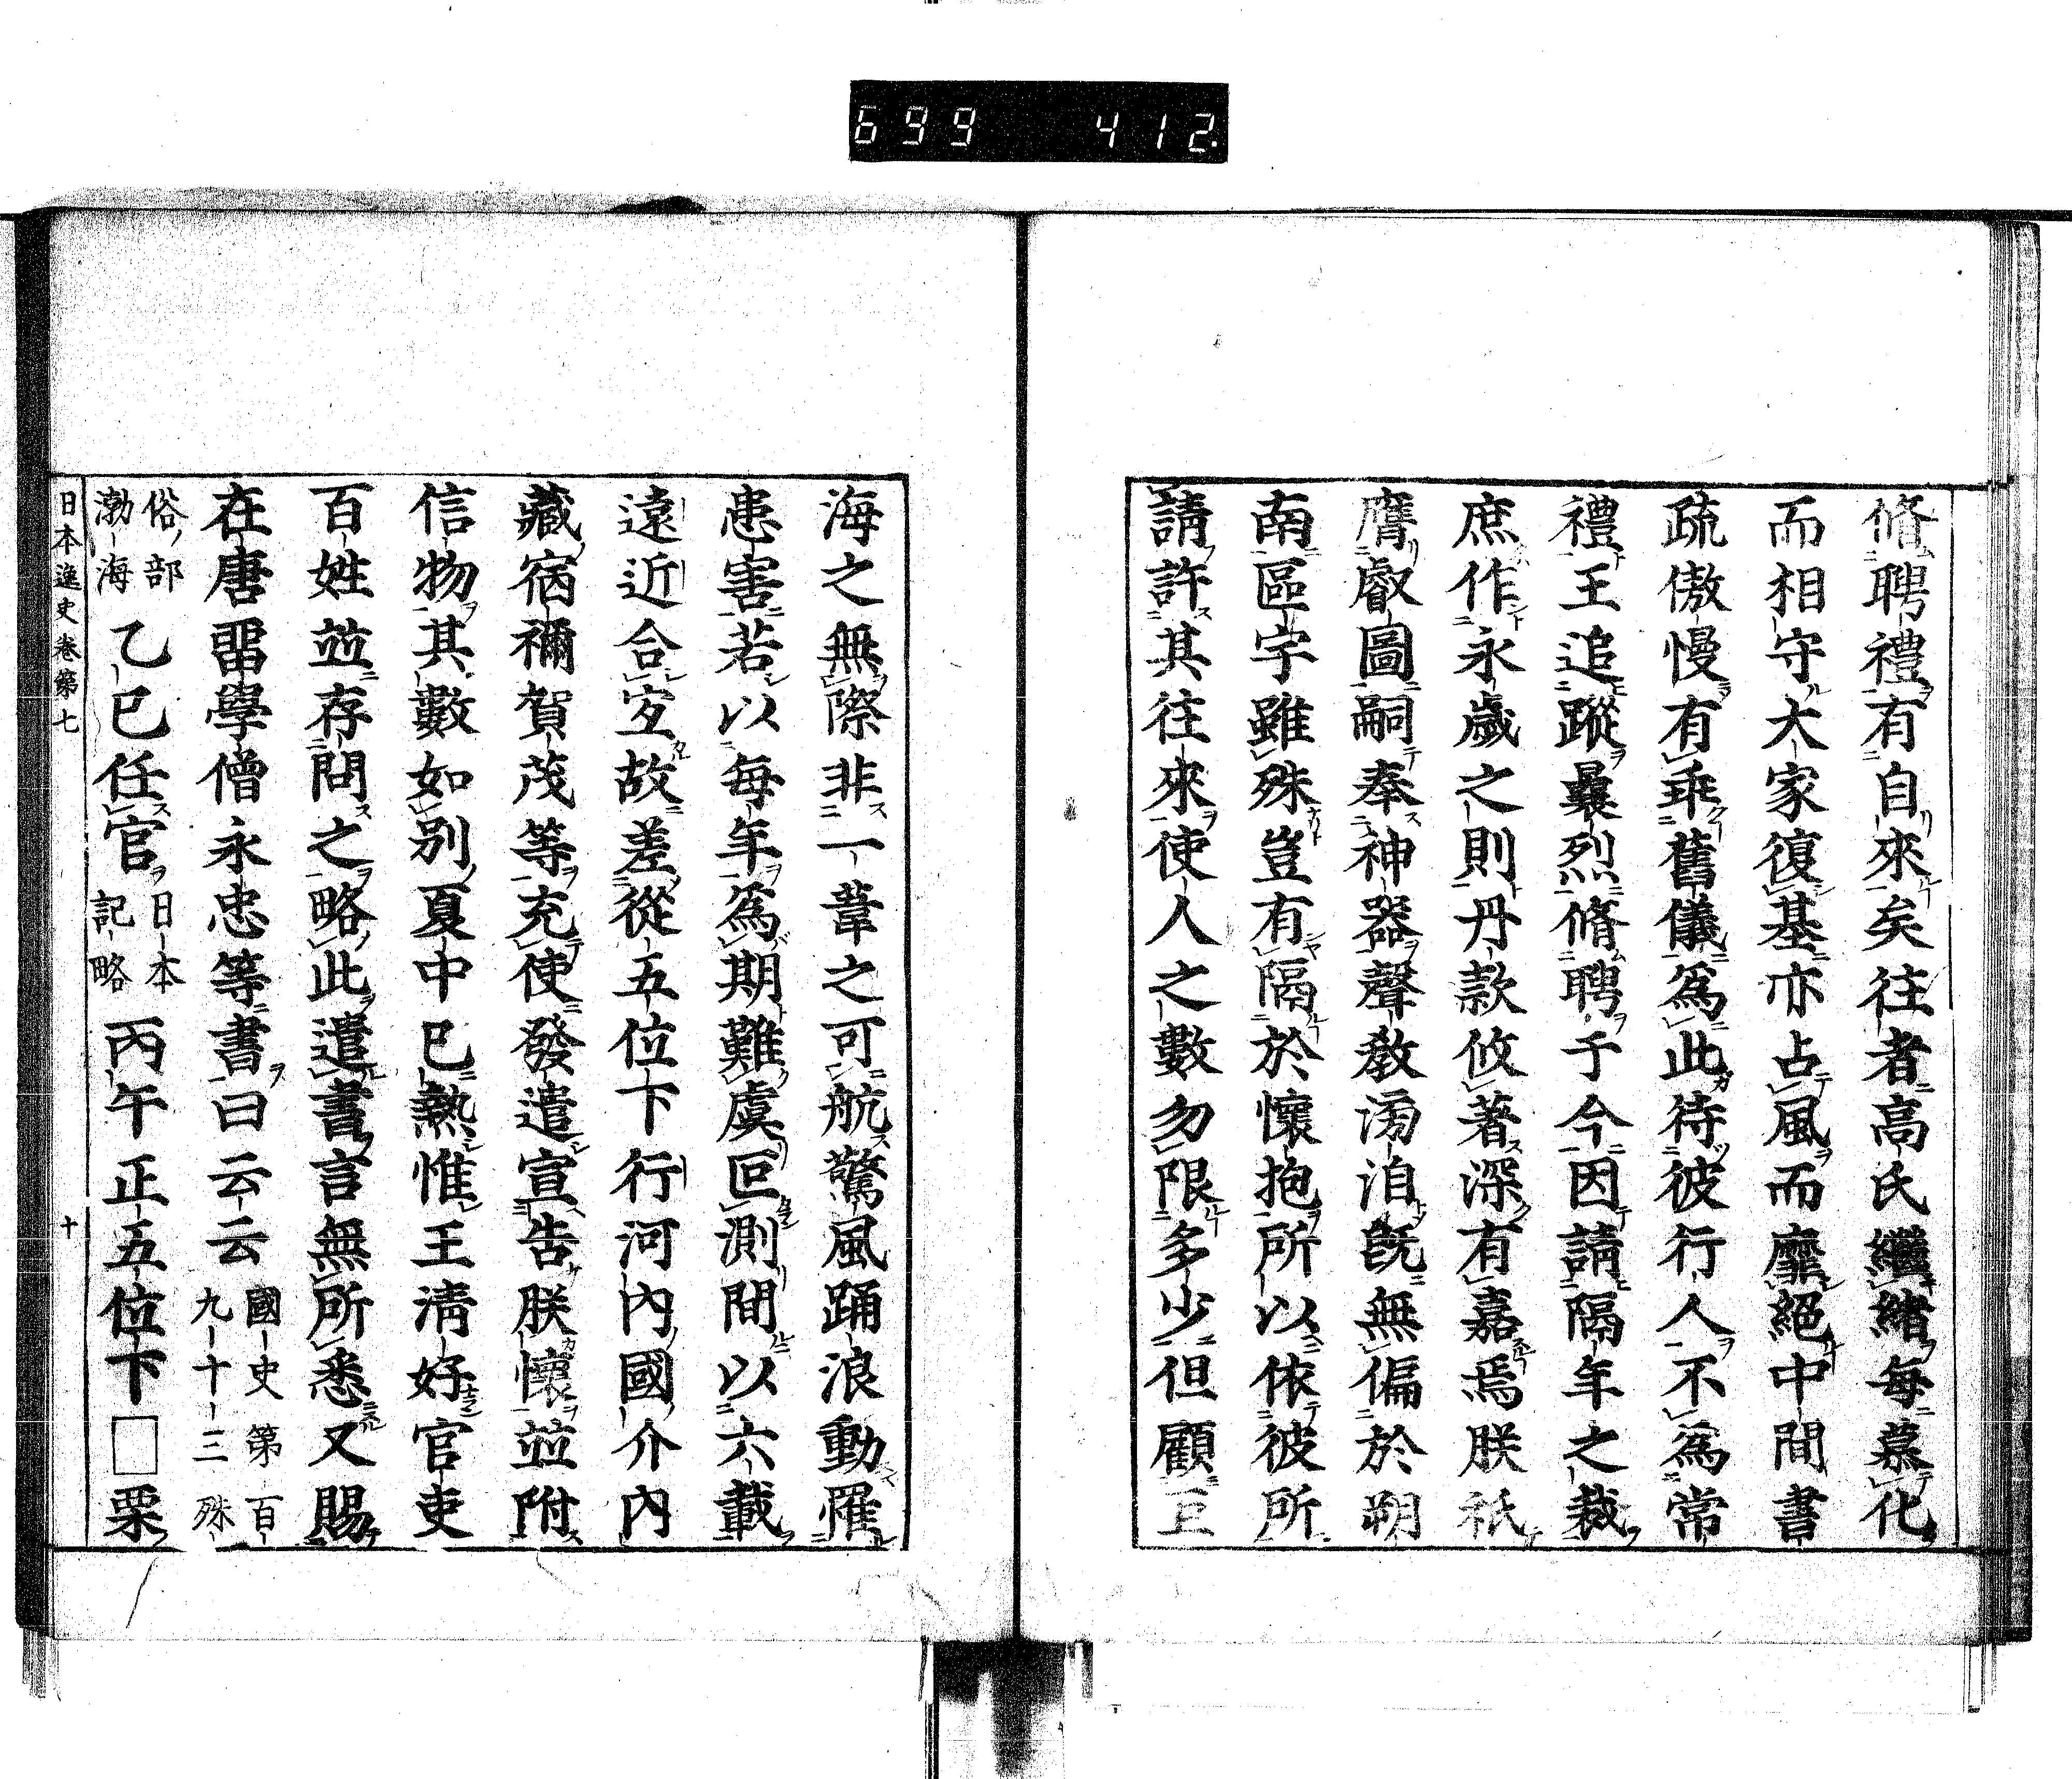 699 412.
脩聘禮有自來矣往者高氏繼緒每慕化
而相守大家復基亦占風而靡絕中間書
疏傲慢有乖舊儀爲此待彼行人不爲常
禮王追蹤曩烈脩聘于今因請隔年之裁
庶作永歲之則丹款攸著深有嘉焉朕祇
膺叡圖嗣奉神器聲敎滂洎旣無偏於朔
南區宇雖殊豈有隔於懷抱所以依彼所
請許其往來使人之數勿限多少但顧巨
海之無際非一葦之可航驚風踊浪動罹
患害若以每年爲期難虞叵測間以六載
遠近合宜故差從五位下行河內國介內
藏宿禰賀茂等充使發遣宣告朕懷並附
信物其數如別夏中已熱惟王淸好官吏
百姓並存問之略此遣書言無所悉又賜
在唐畱學僧永忠等書曰云云 國史第百九十三殊
俗部渤海 乙巳任官 日本記略 丙午正五位下□栗
日本逸史卷第七 十